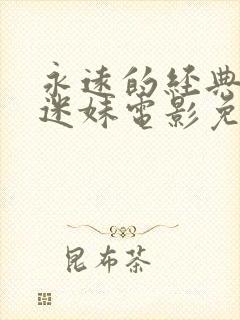 永远的经典
迷妹电影免
昆布茶